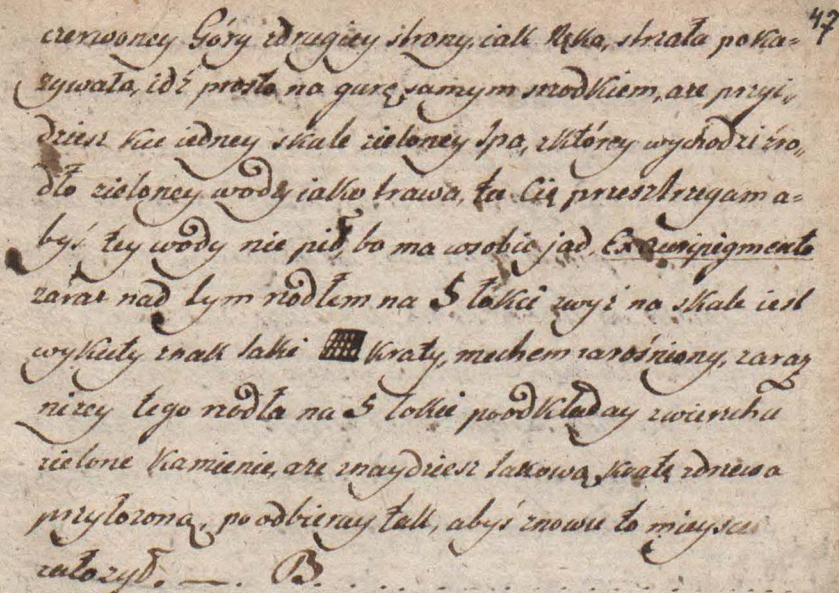 47
czerwoney Góry zdrugiey strony, iak Ręka, strzała poka=
zywała, idź prosto na gurę samym srzodkiem, aże przyi„
dziesz ku iedney skale zieloney Spa, zktórey wychodzi źro„
dło zieloney wody iako trawa, tu Cię przestrzegam a=
byś tey wody nie pił, bo ma wsobie jad. Ex auripigmento
zaraz nad tym rzodłem na 5 łokci zwyż na skale iest
wykuty znak taki kraty, mechem zarośniony, zaraz
niżey tego rzodła na 5 łokci poodkładay zwierzchu
zielone kamienie, aże znaydziesz takową kratę zdrzewa
przyłożoną, poodbieray tak, abyś znowu to mieysce
założył. —. B.